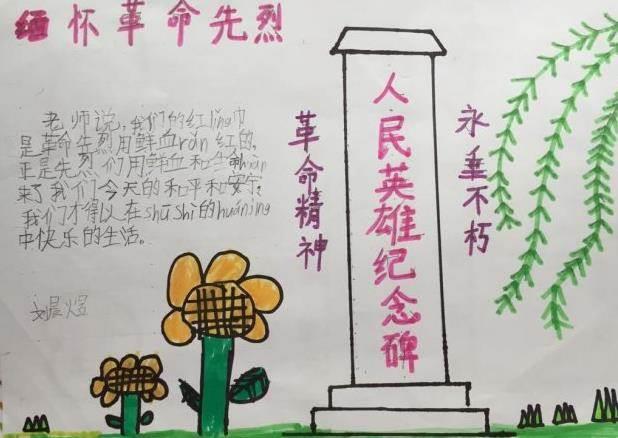 缅怀革命先烈
老师说,我们的红lǐng巾
是革命先烈用鲜血rǎn红的。
正是先烈们用鲜血和生命huàn
来了我们今天的和平和安宁,
我们才得以在shū shì的huánjìng
中快乐的生活。
刘晨煜
革命精神
人民英雄纪念碑
永垂不朽